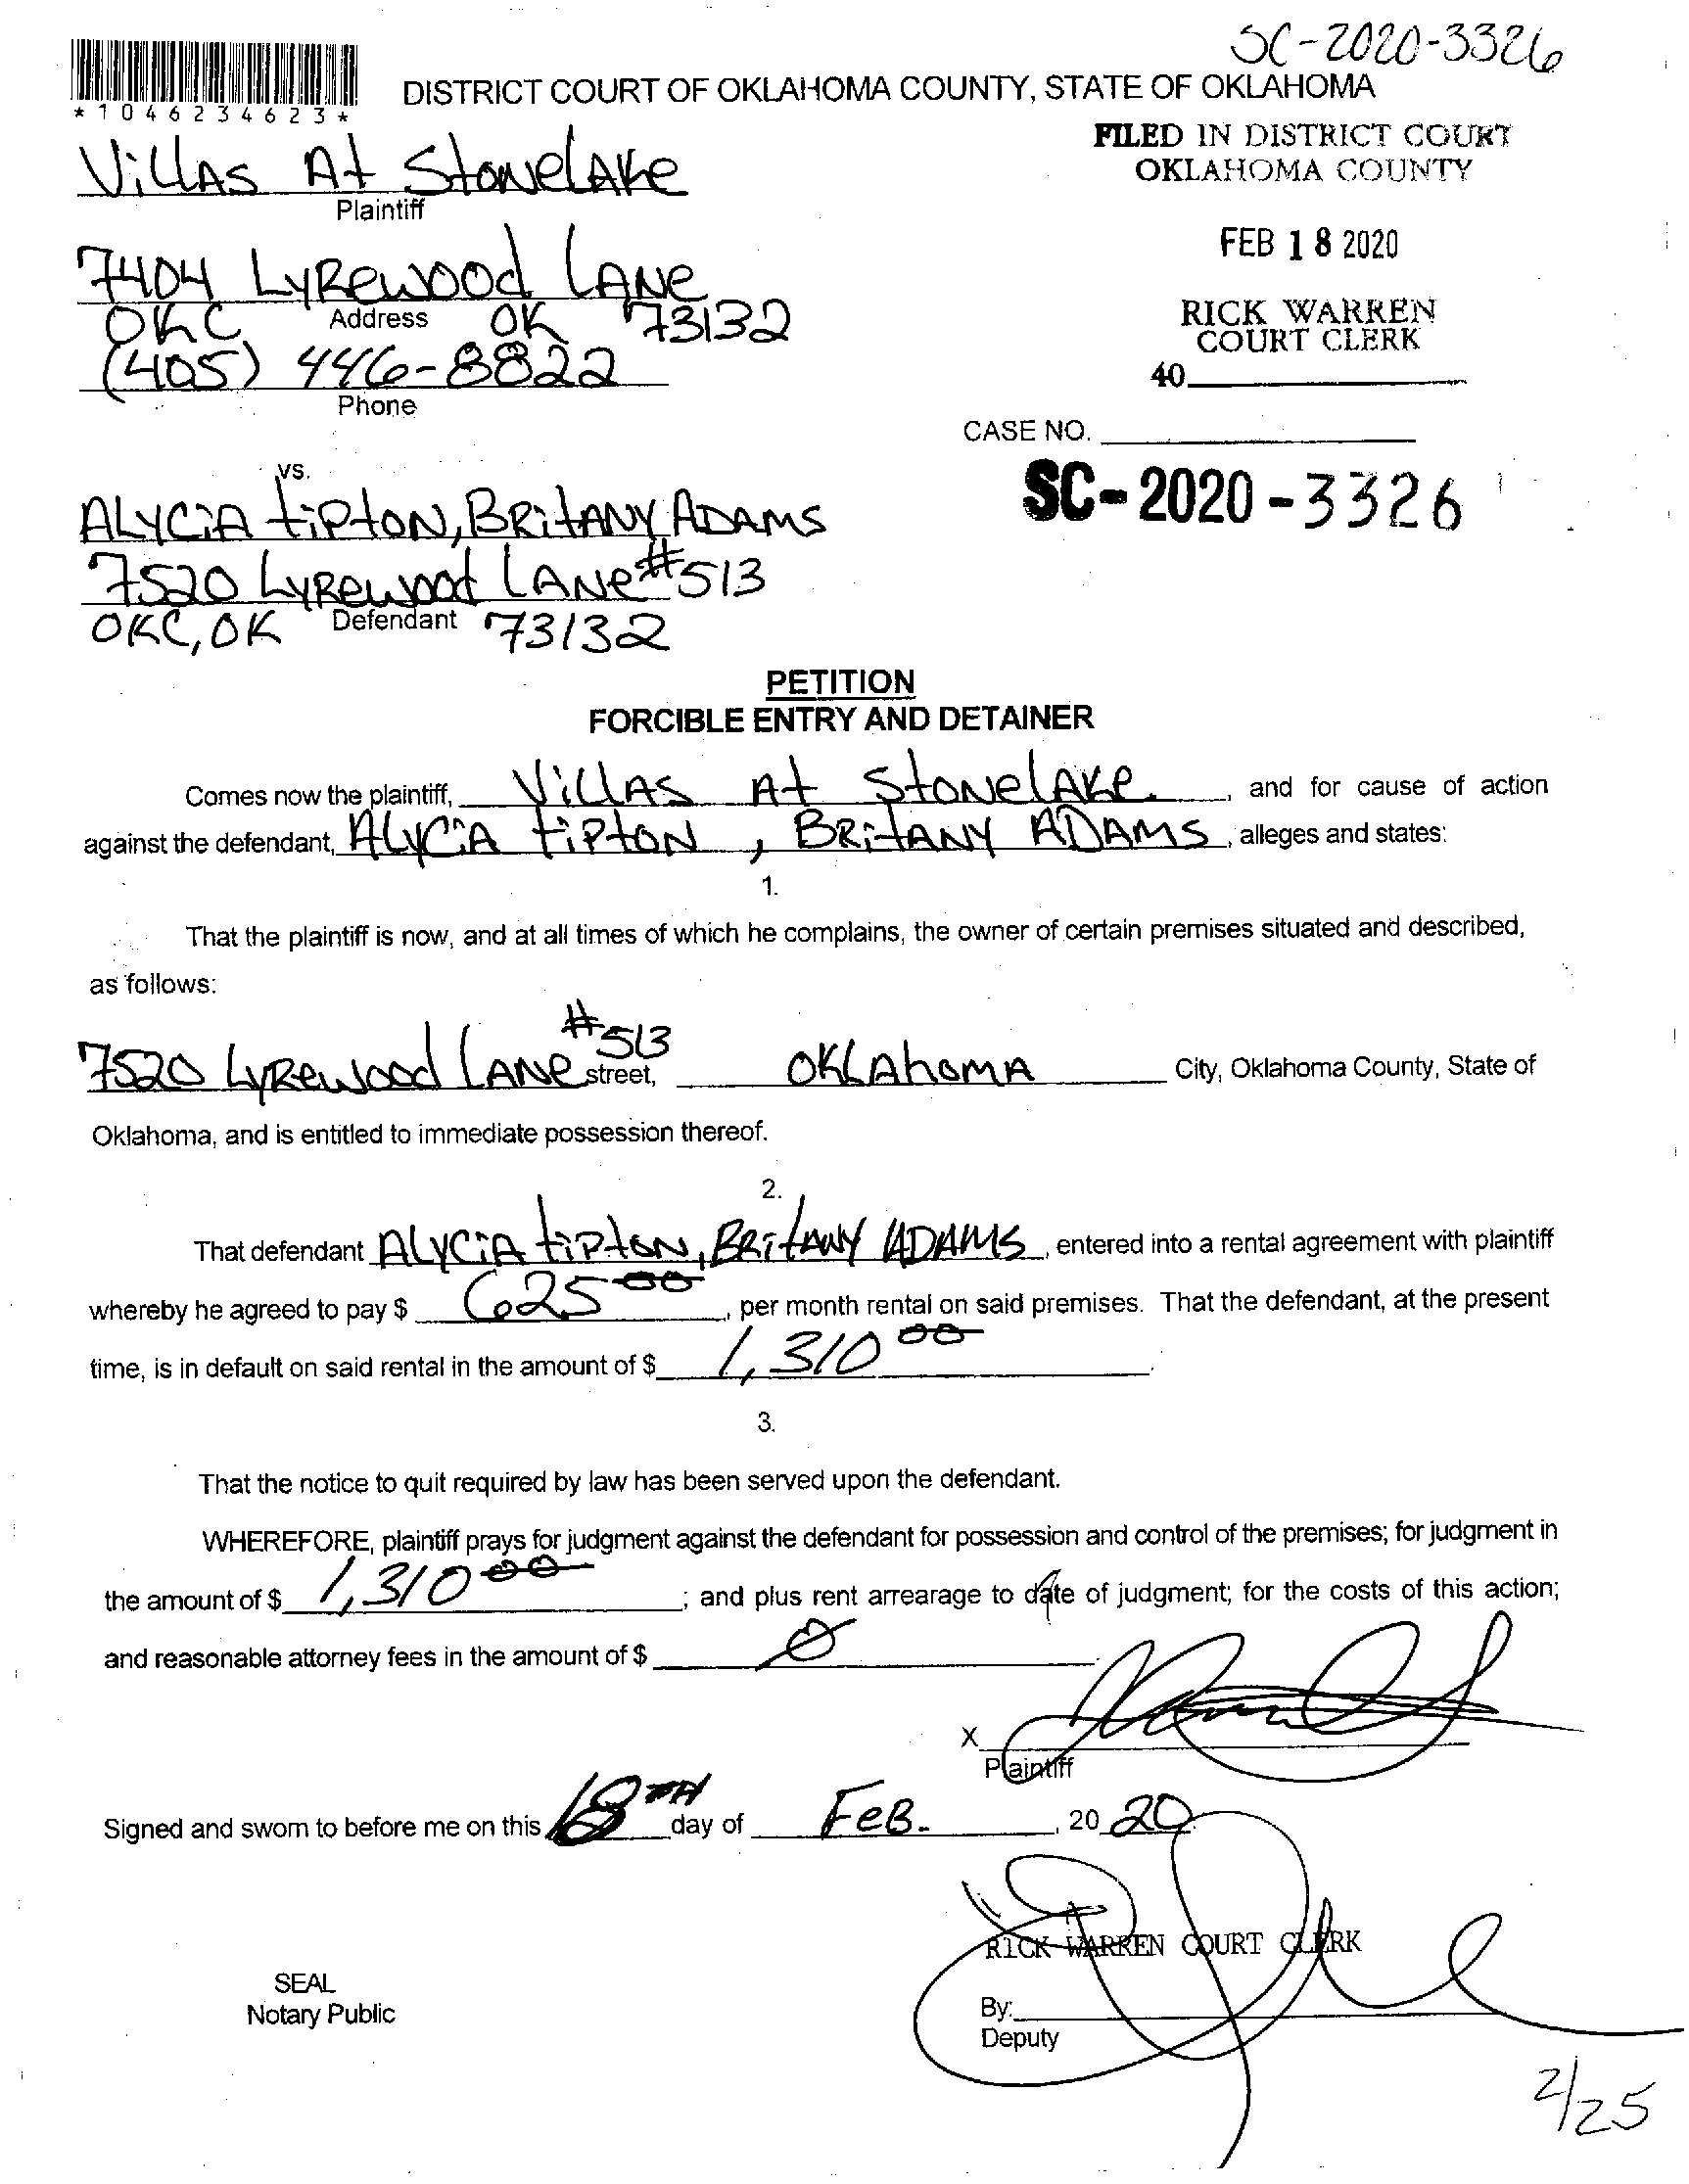 SC-2020-3326
*1046234623*
DISTRICT COURT OF OKLAHOMA COUNTY, STATE OF OKLAHOMA
FILED IN DISTRICT COURT
OKLAHOMA COUNTY
Villas At Stonelake
Plaintiff
FEB 18 2020
7404 Lyrewood Lane
Address
OKC OK 73132
RICK WARREN
COURT CLERK
(405) 446-8822
Phone
40
CASE NO.
SC-2020-3326
vs.
Alycia Tipton, Britany Adams
7520 Lyrewood Lane #513
Defendant
OKC, OK 73132
PETITION
FORCIBLE ENTRY AND DETAINER
Comes now the plaintiff, Villas At Stonelake, and for cause of action
against the defendant, Alycia Tipton, Britany Adams, alleges and states:
1.
That the plaintiff is now, and at all times of which he complains, the owner of certain premises situated and described,
as follows:
7520 Lyrewood Lane #513 street, Oklahoma City, Oklahoma County, State of
Oklahoma, and is entitled to immediate possession thereof.
2.
That defendant Alycia Tipton, Britany Adams, entered into a rental agreement with plaintiff
whereby he agreed to pay $ 625 00, per month rental on said premises. That the defendant, at the present
time, is in default on said rental in the amount of $ 1,310 00.
3.
That the notice to quit required by law has been served upon the defendant.
WHEREFORE, plaintiff prays for judgment against the defendant for possession and control of the premises; for judgment in
the amount of $ 1,310 00; and plus rent arrearage to date of judgment; for the costs of this action;
and reasonable attorney fees in the amount of $ 0
X
Plaintiff
Signed and sworn to before me on this 18TH day of Feb., 20 20
RICK WARREN COURT CLERK
SEAL
Notary Public
By:
Deputy
2/25